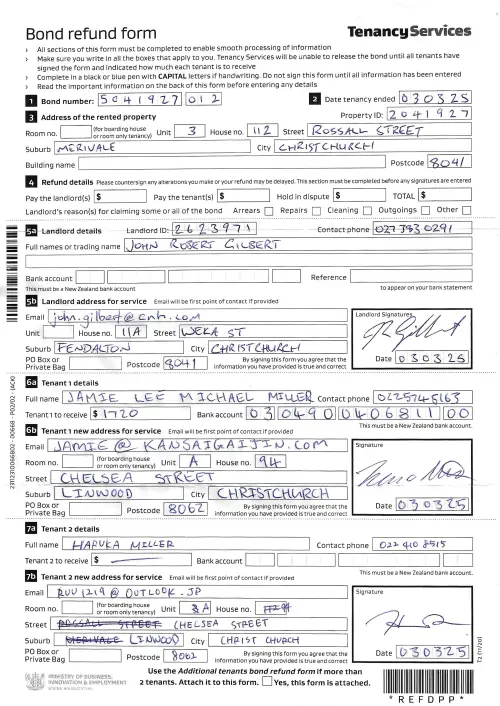 Bond refund form
Tenancy Services
› All sections of this form must be completed to enable smooth processing of information
› Make sure you write in all the boxes that apply to you. Tenancy Services will be unable to release the bond until all tenants have signed the form and indicated how much each tenant is to receive
› Complete in a black or blue pen with CAPITAL letters if handwriting. Do not sign this form until all information has been entered
› Read the important information on the back of this form before entering any details
1 Bond number: 5041927012 2 Date tenancy ended 030325
3 Address of the rented property Property ID: 2041927
Room no. (for boarding house or room only tenancy) Unit 3 House no. 112 Street ROSSALL STREET
Suburb MERIVALE City CHRISTCHURCH
Building name Postcode 8041
4 Refund details Please countersign any alterations you make or your refund may be delayed. This section must be completed before any signatures are entered
Pay the landlord(s) $ Pay the tenant(s) $ Hold in dispute $ TOTAL $
Landlord's reason(s) for claiming some or all of the bond Arrears Repairs Cleaning Outgoings Other
5a Landlord details Landlord ID: 2623971 Contact phone 027 383 0291
Full names or trading name JOHN ROBERT GILBERT
Bank account Reference
This must be a New Zealand bank account to appear on your bank statement
5b Landlord address for service Email will be first point of contact if provided
Email john.gilbert@cnh.com Landlord Signatures
Unit House no. 11A Street WEKA ST
Suburb FENDALTON City CHRISTCHURCH
PO Box or Private Bag Postcode 8041 By signing this form you agree that the information you have provided is true and correct Date 030325
6a Tenant 1 details
Full name JAMIE LEE MICHAEL MILLER Contact phone 0225745163
Tenant 1 to receive $ 1720 Bank account 03 0490 0406811 00
This must be a New Zealand bank account.
6b Tenant 1 new address for service Email will be first point of contact if provided
Email JAMIE@KANSAIGAIJIN.COM Signature
Room no. (for boarding house or room only tenancy) Unit A House no. 94
Street CHELSEA STREET
Suburb LINWOOD City CHRISTCHURCH
PO Box or Private Bag Postcode 8062 By signing this form you agree that the information you have provided is true and correct Date 030325
7a Tenant 2 details
Full name HARUKA MILLER Contact phone 022 410 8515
Tenant 2 to receive $ Bank account
This must be a New Zealand bank account.
7b Tenant 2 new address for service Email will be first point of contact if provided
Email RUU1219@OUTLOOK.JP Signature
Room no. (for boarding house or room only tenancy) Unit A House no. 94
Street ROSSALL STREET CHELSEA STREET
Suburb MERIVALE LINWOOD City CHRIST CHURCH
PO Box or Private Bag Postcode 8062 By signing this form you agree that the information you have provided is true and correct Date 030325
MINISTRY OF BUSINESS, INNOVATION & EMPLOYMENT
Use the Additional tenants bond refund form if more than 2 tenants. Attach it to this form. Yes, this form is attached.
*REFDPP*